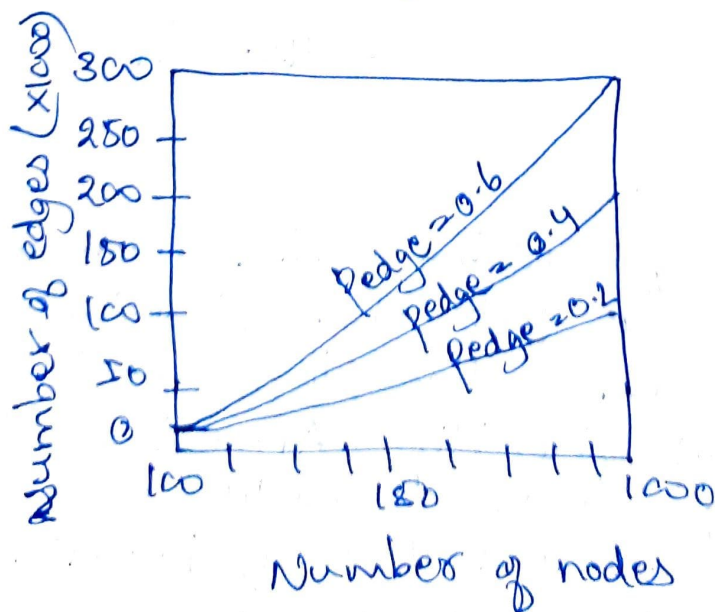 Number of edges (x1000)
300
250
200
150
100
50
0
Pedge = 0.6
Pedge = 0.4
Pedge = 0.2
100
150
1000
Number of nodes